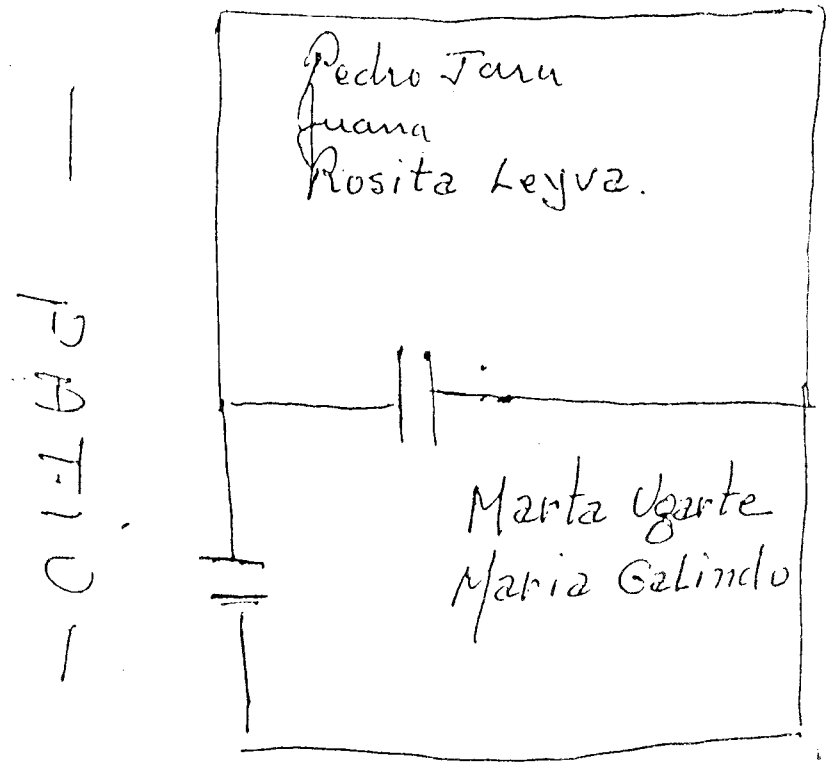 Pedro Jara
Juana
Rosita Leyva.
— PATIO —
Marta Ugarte
Maria Galindo